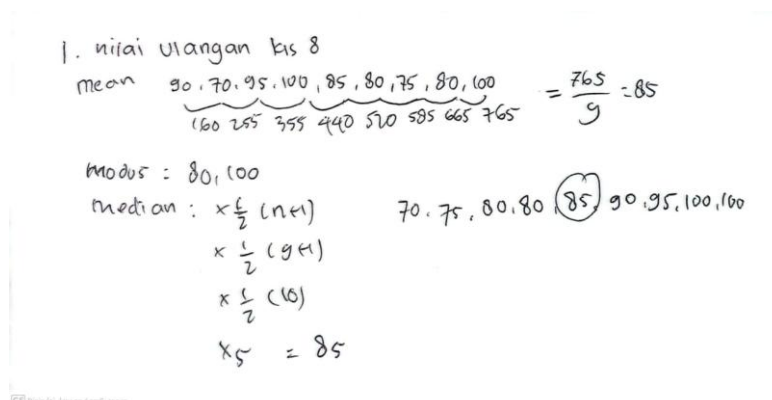 1. nilai ulangan kls 8
mean 90, 70, 95, 100, 85, 80, 75, 80, 100 = 765/9 = 85
160 255 355 440 520 595 665 765
modus : 80, 100
median : x 1/2 (n+1) 70, 75, 80, 80, 85, 90, 95, 100, 100
x 1/2 (9+1)
x 1/2 (10)
x5 = 85